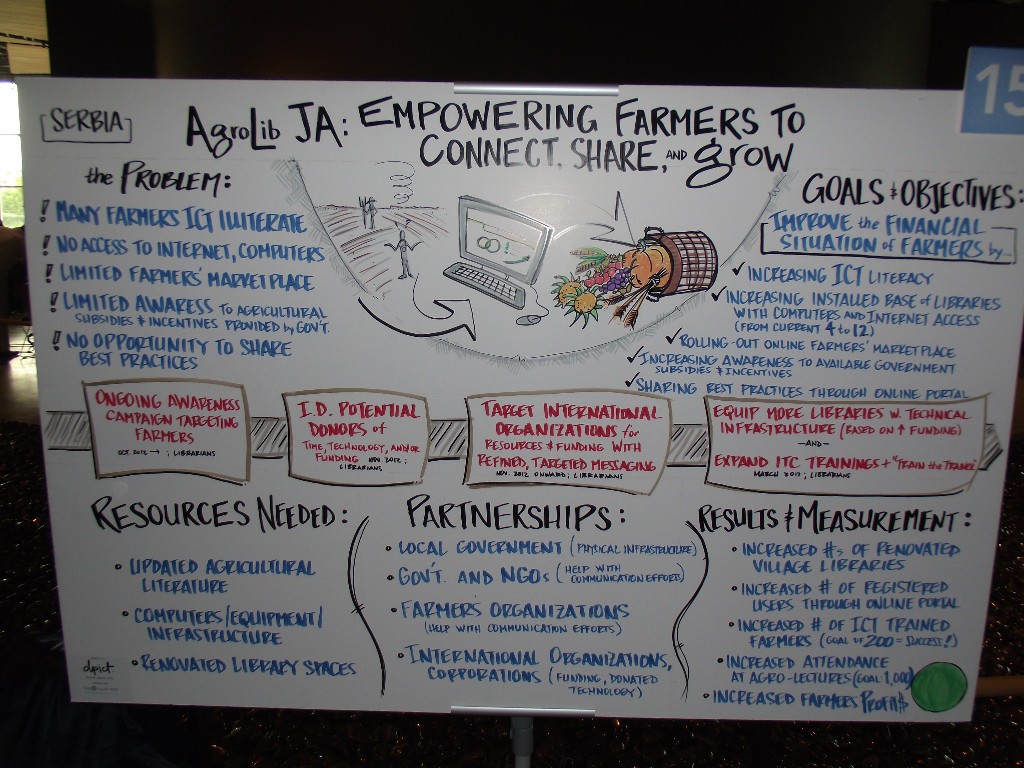 15
[SERBIA]
AgroLib JA: EMPOWERING FARMERS TO
CONNECT, SHARE, AND grow
the PROBLEM:
! MANY FARMERS ICT ILLITERATE
! NO ACCESS TO INTERNET, COMPUTERS
! LIMITED FARMERS' MARKETPLACE
! LIMITED AWARESS TO AGRICULTURAL
SUBSIDIES & INCENTIVES PROVIDED by GOV'T.
! NO OPPORTUNITY TO SHARE
BEST PRACTICES
GOALS & OBJECTIVES:
IMPROVE the FINANCIAL
SITUATION of FARMERS by...
✓ INCREASING ICT LITERACY
✓ INCREASING INSTALLED BASE of LIBRARIES
WITH COMPUTERS AND INTERNET ACCESS
(FROM CURRENT 4 to 12)
✓ ROLLING-OUT ONLINE FARMERS' MARKETPLACE
✓ INCREASING AWARENESS TO AVAILABLE GOVERNMENT
SUBSIDIES & INCENTIVES
✓ SHARING BEST PRACTICES THROUGH ONLINE PORTAL
ONGOING AWARENESS
CAMPAIGN TARGETING
FARMERS
OCT. 2012 → ; LIBRARIANS
I.D. POTENTIAL
DONORS of
TIME, TECHNOLOGY, AND/OR
FUNDING NOV. 2012 ;
LIBRARIANS
TARGET INTERNATIONAL
ORGANIZATIONS for
RESOURCES & FUNDING WITH
REFINED, TARGETED MESSAGING
NOV. 2012 ONWARD ; LIBRARIANS
EQUIP MORE LIBRARIES W. TECHNICAL
INFRASTRUCTURE (BASED ON ↑ FUNDING)
—AND—
EXPAND ITC TRAININGS + "TRAIN the TRAINER"
MARCH 2013 ; LIBRARIANS
RESOURCES NEEDED:
• UPDATED AGRICULTURAL
LITERATURE
• COMPUTERS/EQUIPMENT/
INFRASTRUCTURE
• RENOVATED LIBRARY SPACES
PARTNERSHIPS:
• LOCAL GOVERNMENT (PHYSICAL INFRASTRUCTURE)
• GOV'T. AND NGOs (HELP WITH
COMMUNICATION EFFORTS)
• FARMER'S ORGANIZATIONS
(HELP WITH COMMUNICATION EFFORTS)
• INTERNATIONAL ORGANIZATIONS,
CORPORATIONS (FUNDING, DONATED
TECHNOLOGY)
RESULTS & MEASUREMENT:
• INCREASED #s OF RENOVATED
VILLAGE LIBRARIES
• INCREASED # OF REGISTERED
USERS THROUGH ONLINE PORTAL
• INCREASED # OF ICT TRAINED
FARMERS (GOAL OF 200 = SUCCESS!)
• INCREASED ATTENDANCE
AT AGRO-LECTURES (GOAL: 1,000)
• INCREASED FARMERS PROFIT$
dpict